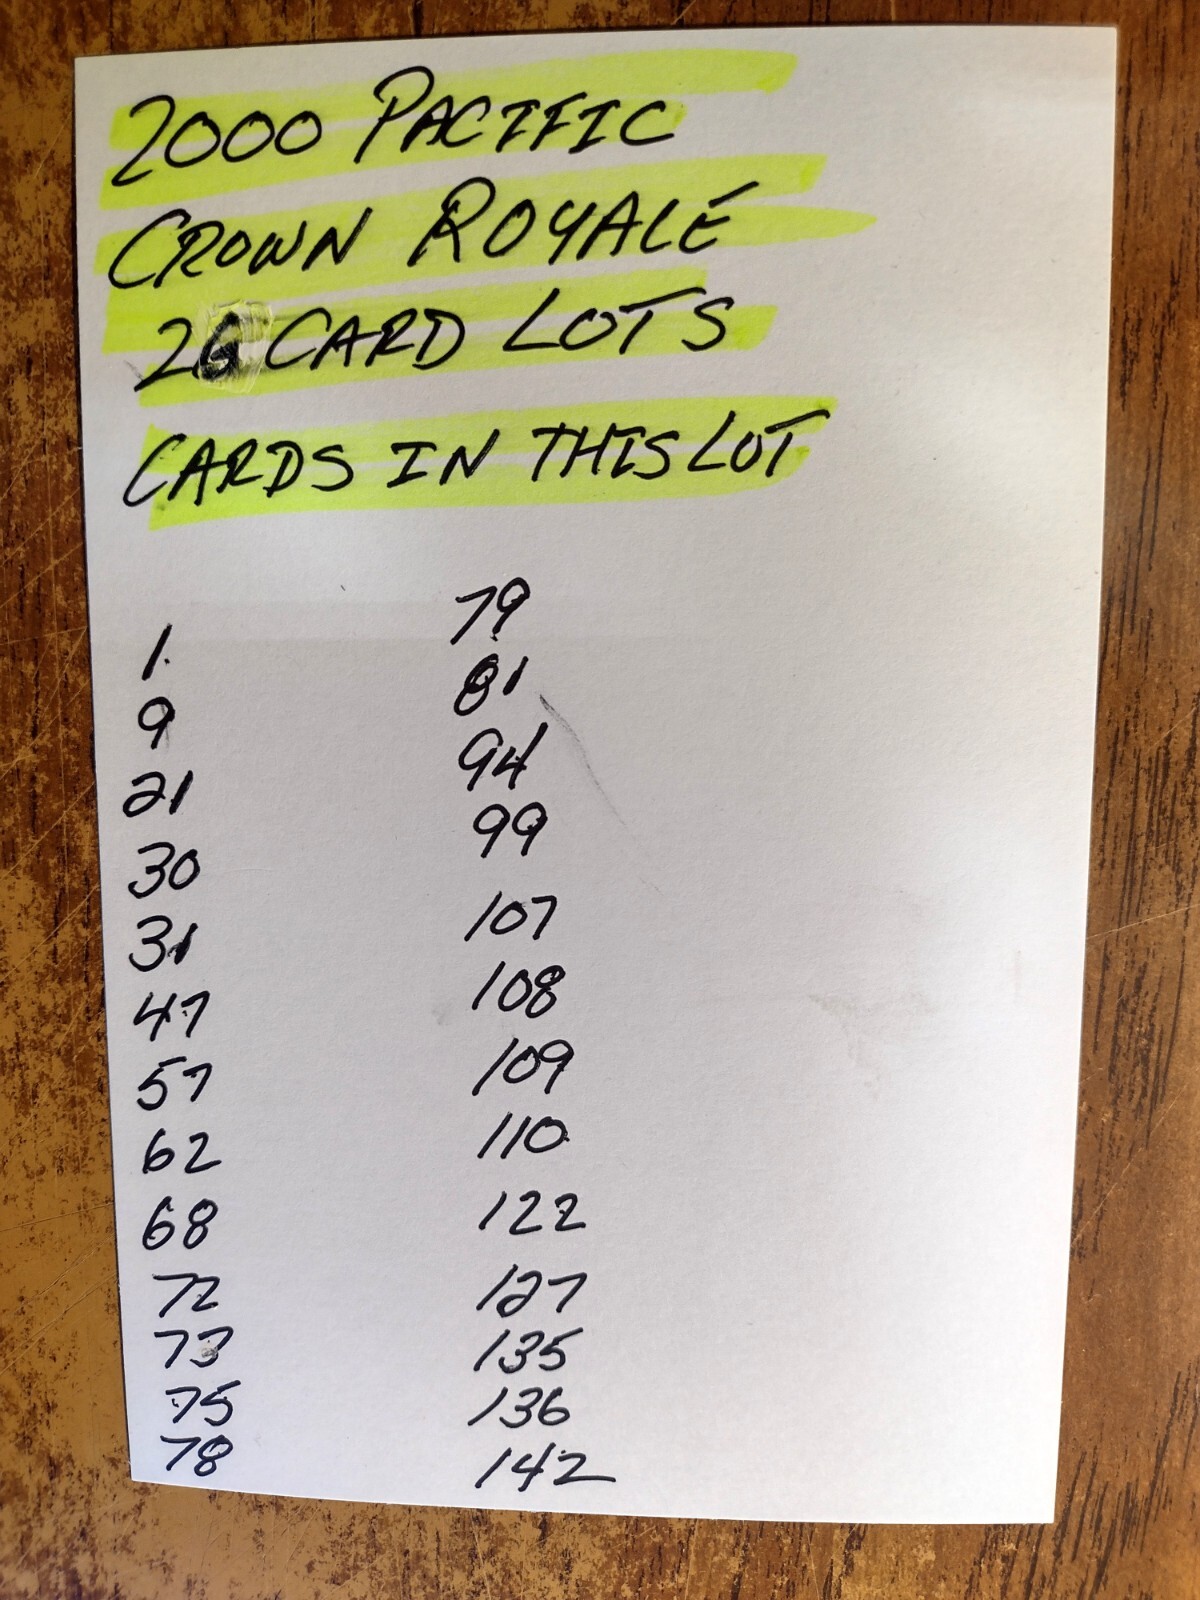 2000 PACIFIC
CROWN ROYALE
26 CARD LOTS
CARDS IN THIS LOT
1
9
21
30
31
47
57
62
68
72
73
75
78
79
81
94
99
107
108
109
110
122
127
135
136
142